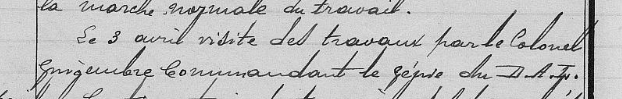 la marche normale du travail.
Le 3 avril visite des travaux par le Colonel
Guigembre Commandant le génie du D.A.P.